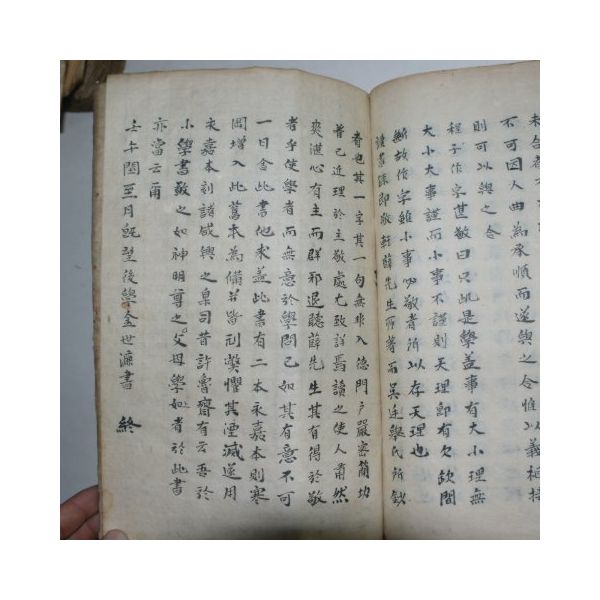 未合者
不可因人曲爲承順而遂與之合惟以義裡持
則可以與之合
程子作字甚敬曰只此是學蓋事有大小理無
大小大事謹而小事不謹則天理即有欠缺間
斷故作字雖小事必敬者所以存天理也
讀書録即敬軒薛先生所著而吳廷擧氏所鈔
者也其一字其一句無非入德門戶嚴密簡功
普己近理於主敬處尤致詳焉讀之使人肅然
爽湛心有主而群邪退聽薛先生其有得於敬
者乎使學者而無意於學問已如其有意不可
一日舍此書他求蓋此書有二本永嘉本則寒
岡增入此舊本爲備若皆刓弊懼其湮滅遂用
永嘉本刻諸咸興之臬司昔許魯齋有云吾於
小學書敬之如神明尊之父母學如者於此書
亦當云爾
壬午閏至月旣望後學金世濂書 終